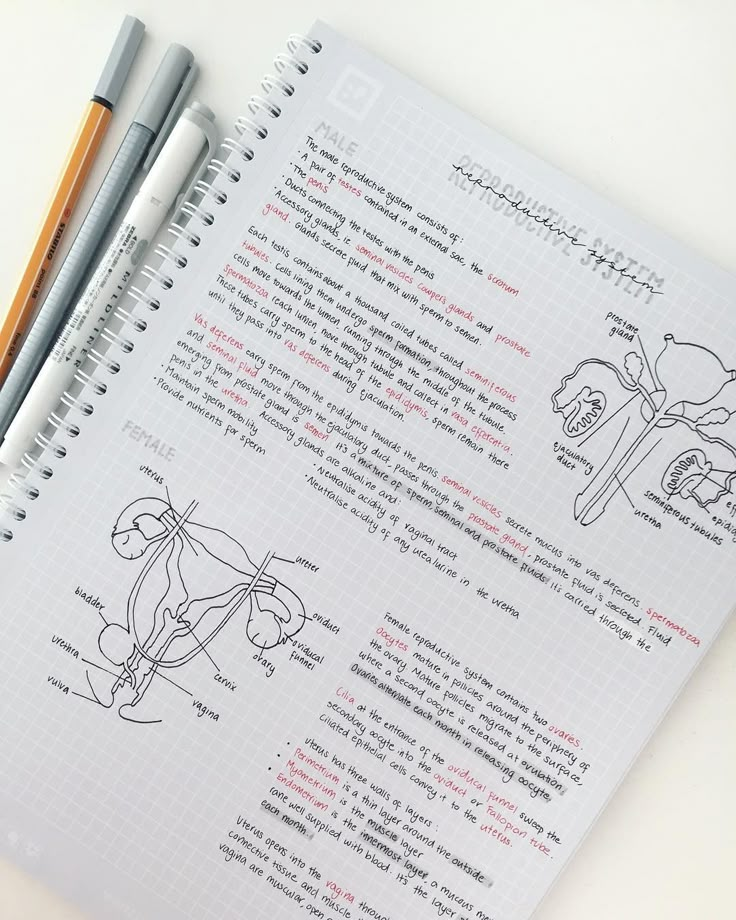 REPRODUCTIVE SYSTEM
reproductive system
MALE
The male reproductive system consists of:
• A pair of testes contained in an external sac, the scrotum
• The penis
• Ducts connecting the testes with the penis
• Accessory glands, ie. seminal vesicles cowper's glands and prostate
gland. Glands secrete fluid that mix with sperm to semen.
Each testis contains about a thousand coiled tubes called seminiferous
tubules. Cells lining them undergo sperm formation, throughout the process
cells move towards the lumen, running through the middle of the tubule.
spermatozoa reach lumen, move through tubule and collect in vasa efferentia.
These tubes carry sperm to the head of the epididymis, sperm remain there
until they pass into vas deferens during ejaculation.
Vas deferens carry sperm from the epididymis towards the penis. seminal vesicles secrete mucus into vas deferens. spermatozoa
and seminal fluid move through the ejaculatory duct, passes through the prostate gland, prostate fluid is secreted. Fluid
emerging from prostate gland is semen. It's a mixture of sperm, seminal and prostate fluids. It's carried through the
penis in the uretha. Accessory glands are alkaline and:
• Maintain sperm mobility
• Provide nutrients for sperm
• Neutralise acidity of vaginal tract
• Neutralise acidity of any urea/urine in the uretha
prostate
gland
ejaculatory
duct
uretha
seminiferous
tubules
FEMALE
uterus
ureter
bladder
urethra
vulva
oviduct
oviducal
funnel
ovary
cervix
vagina
Female reproductive system contains two ovaries.
Oocytes mature in policies around the periphery of
the ovary. Mature follicles migrate to the surface,
where a second oocyte is released at ovulation.
Ovaries alternate each month in releasing oocyte.
Cilia at the entrance of the oviducal funnel sweep the
secondary oocyte into the oviduct or Fallopion tube.
Ciliated epithelial cells convey it to the uterus.
uterus has three walls of layers:
• Perimetrium is a thin layer around the outside
• Myometrium is the muscle layer
• Endometrium is the innermost layer, a mucous
rane well supplied with blood. It's the layer
each month.
Uterus opens into the vagina through
connective tissue and muscle
vagina are muscular, open